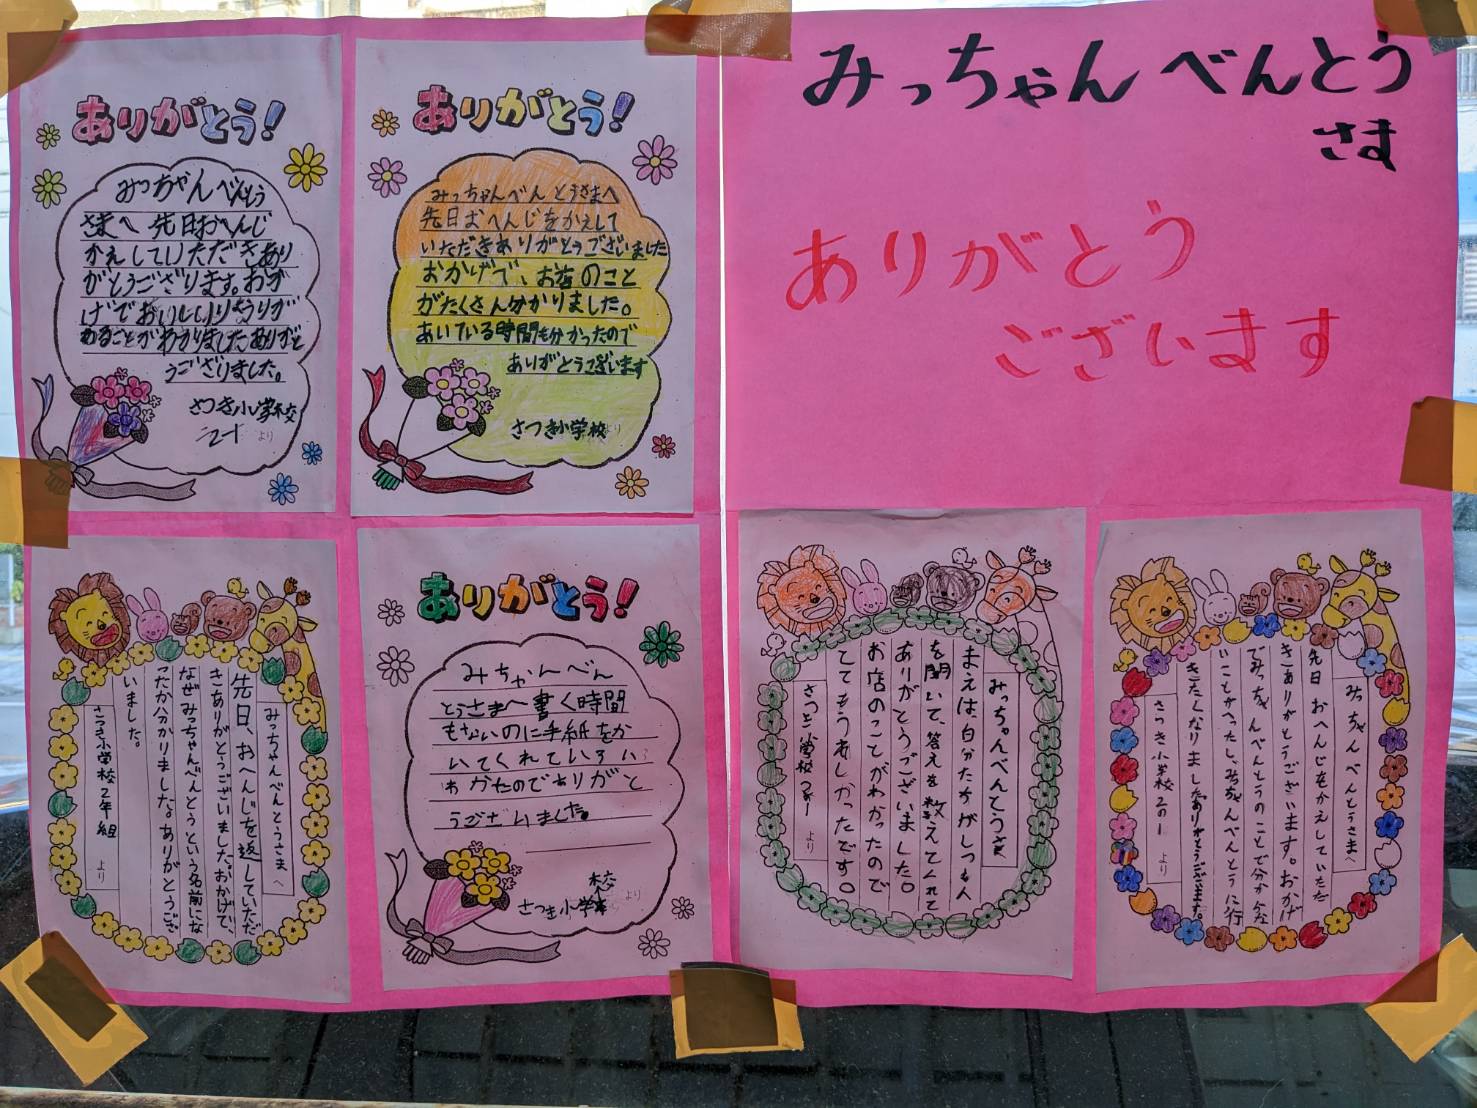 みっちゃんべんとう
さま
ありがとう
ございます
ありがとう!
みっちゃんべんとう
さまへ 先日おへんじ
かえしていただきあり
がとうござります。おか
げでおいしいりょうりが
あることがわかりましたありがと
うござりました。
さつき小学校
より
ありがとう!
みっちゃんべんとうさまへ
先日おへんじをかえして
いただきありがとうございました
おかげで、お店のこと
がたくさん分かりました。
あいている時間も分かったので
ありがとうございます
さつき小学校より
みっちゃんべんとうさまへ
先日、おへんじを返していただ
きありがとうございました。おかげで、
なぜみっちゃんべんとうという名前にな
ったか分かりました。ありがとうござ
いました。
さつき小学校2年組
より
ありがとう!
みちゃんべん
とうさまへ書く時間
もないのに手紙をか
いてくれていろい
わかたのでありがと
うございました。
さつき小学校
より
みっちゃんべんとうさま
まえは、自分たちがしつも人
を聞いて、答えを教えてくれて
ありがとうございました。
お店のことがわかったので
とてもうれしかったです。
さつき小学校
より
みっちゃんべんとうさまへ
先日おへんじをかえしていただ
きありがとうございます。おかげ
でみっちゃんべんとうのことで分かんな
いことがへったし、みちゃんべんとうに行
きたくなりましたありがとうございます。
さつき小学校2の1
より